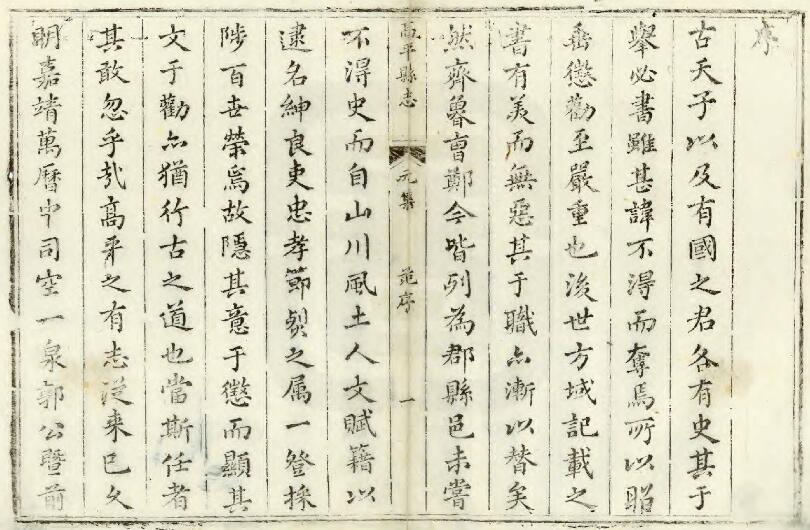 序
古天子以及有國之君各有史其于
舉必書雖甚諱不得而奪焉所以昭
垂懲勸至嚴重也後世方域記載之
書有美而無惡其于職亦漸以替矣
然齊魯曹鄭今皆列為郡縣邑未嘗
高平縣志 元集 范序 一
不得史而自山川風土人文賦籍以
逮名紳良吏忠孝節烈之属一登採
陟百世榮焉故隱其意于懲而顯其
文于勸亦猶行古之道也當斯任者
其敢忽乎哉高平之有志從来已久
明嘉靖萬曆中司空一泉郭公暨前